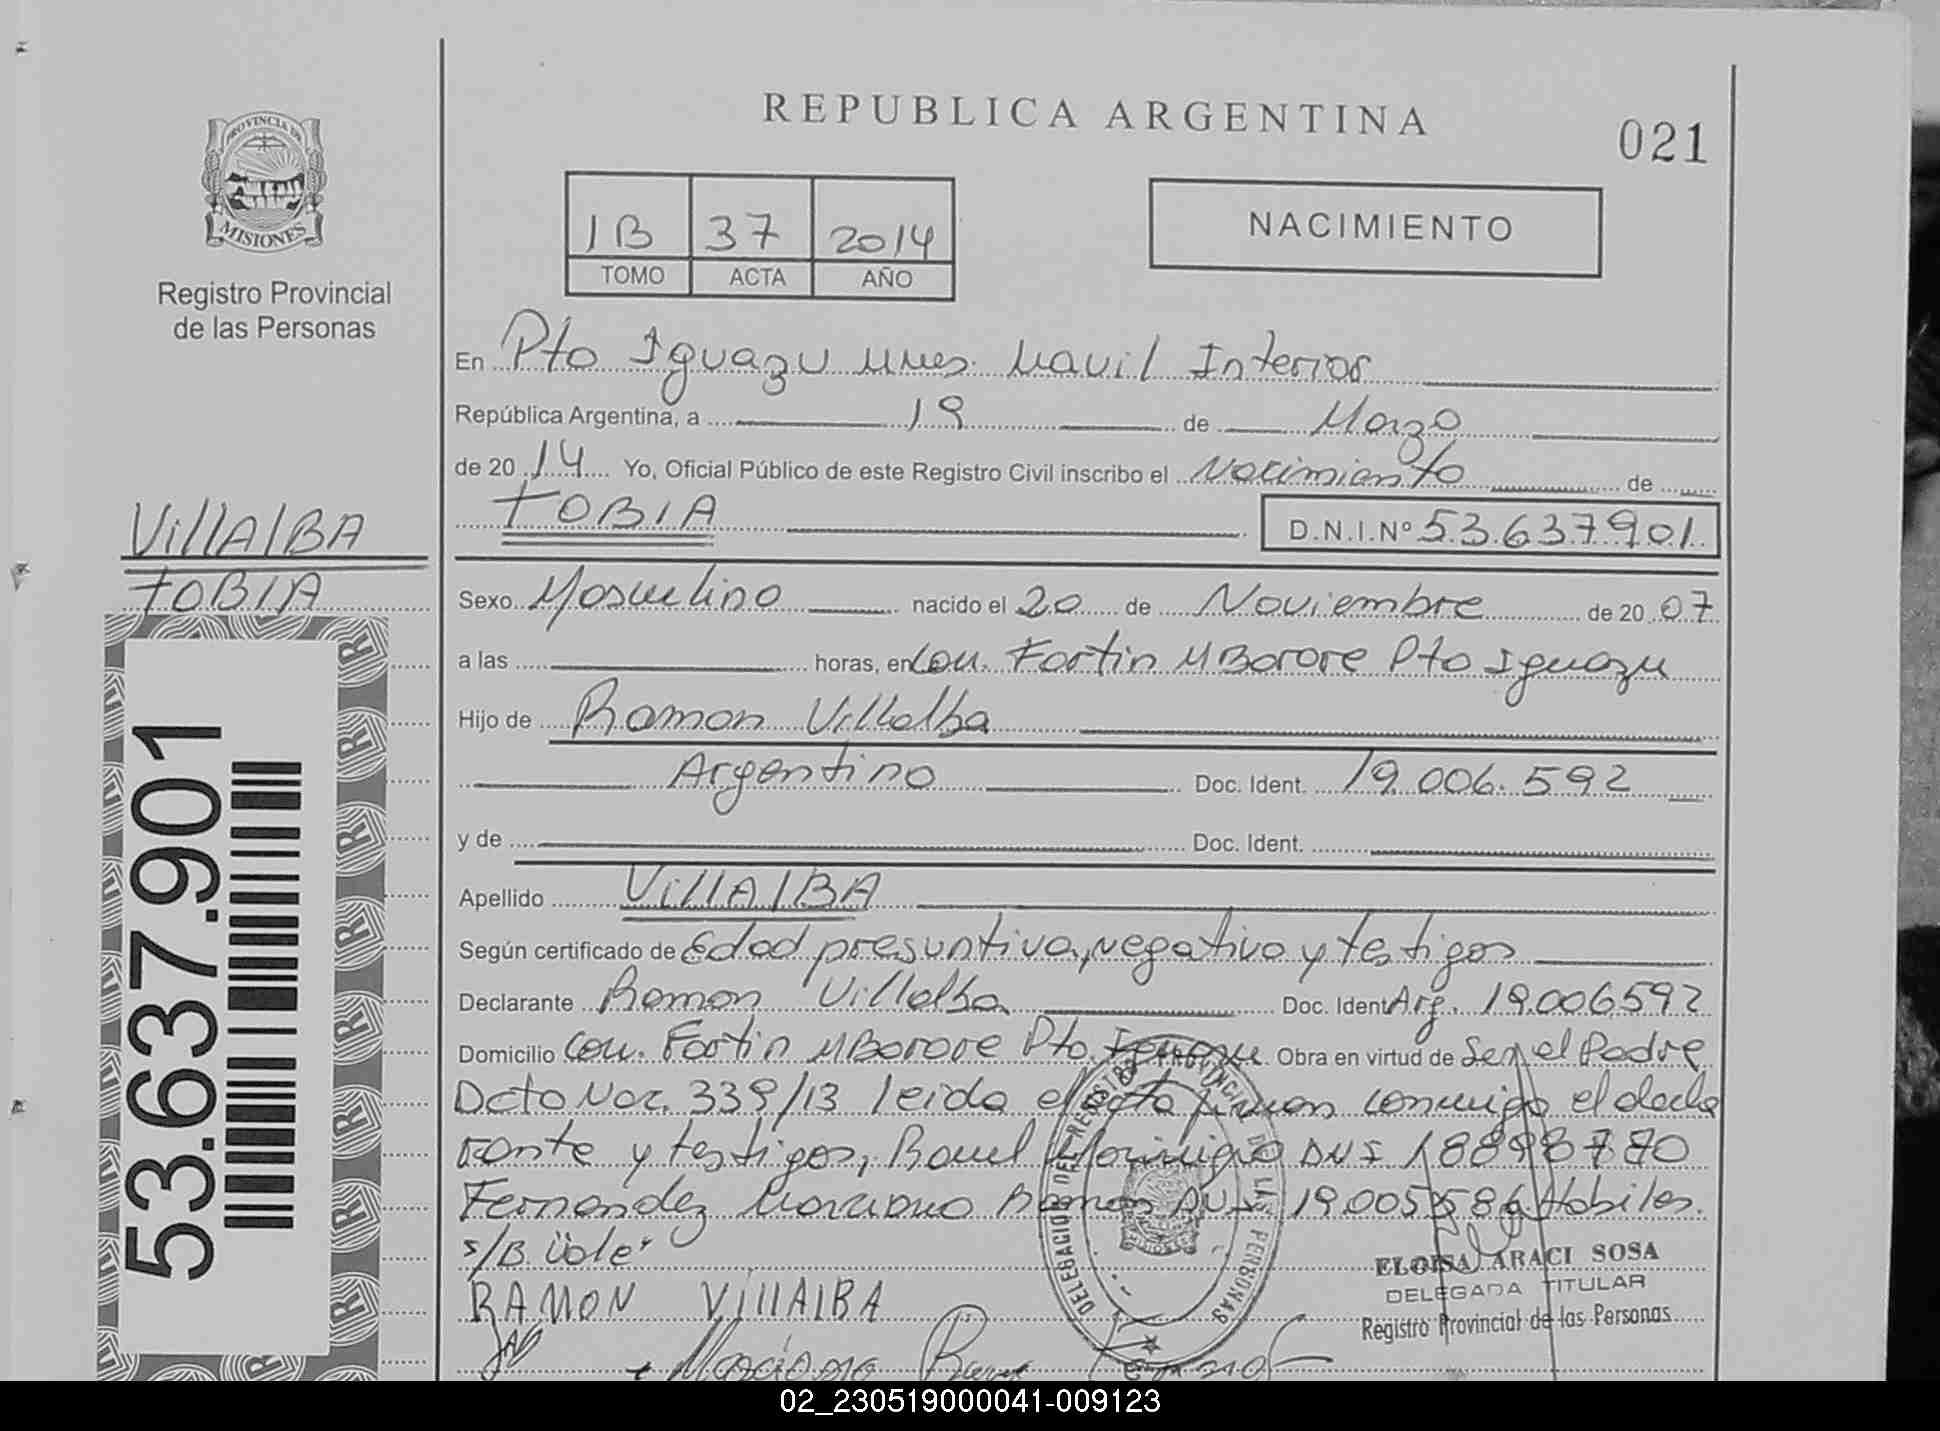 REPUBLICA ARGENTINA
021
PROVINCIA DE
MISIONES
Registro Provincial
de las Personas
1B 37 2014
TOMO ACTA AÑO
NACIMIENTO
En Pto Iguazu Mnes. Movil Interior
República Argentina, a 19 de Marzo
de 2014 Yo, Oficial Público de este Registro Civil inscribo el Nacimiento de
TOBIA D.N.I.Nº 53.637.901
VillAlBA
TOBIA
Sexo Masculino nacido el 20 de Noviembre de 2007
a las horas, en Com. Fortin MBorore Pto Iguazu
Hijo de Ramon Villalba
Argentino Doc. Ident. 19.006.592
y de Doc. Ident.
Apellido VillAlBA
Según certificado de Edad presuntiva, negativo y testigos
Declarante Ramon Villalba Doc. Ident Arg. 19.006592
Domicilio Com. Fortin MBorore Pto Iguazu Obra en virtud de Ser el Padre
Dcto Nac. 339/13 leida el acta firman conmigo el decla
rante y testigos, Raul Morinigo DNI 18898770
Fernandez Marciano Ramon DNI 19.005586 Habiles.
s/B. Vale
RAMON VillAlBA
Marciano Ramon
ELOISA ARACI SOSA
DELEGADA TITULAR
Registro Provincial de las Personas
DELEGACION DEL REGISTRO PROVINCIAL DE LAS PERSONAS
53.637.901
02_230519000041-009123